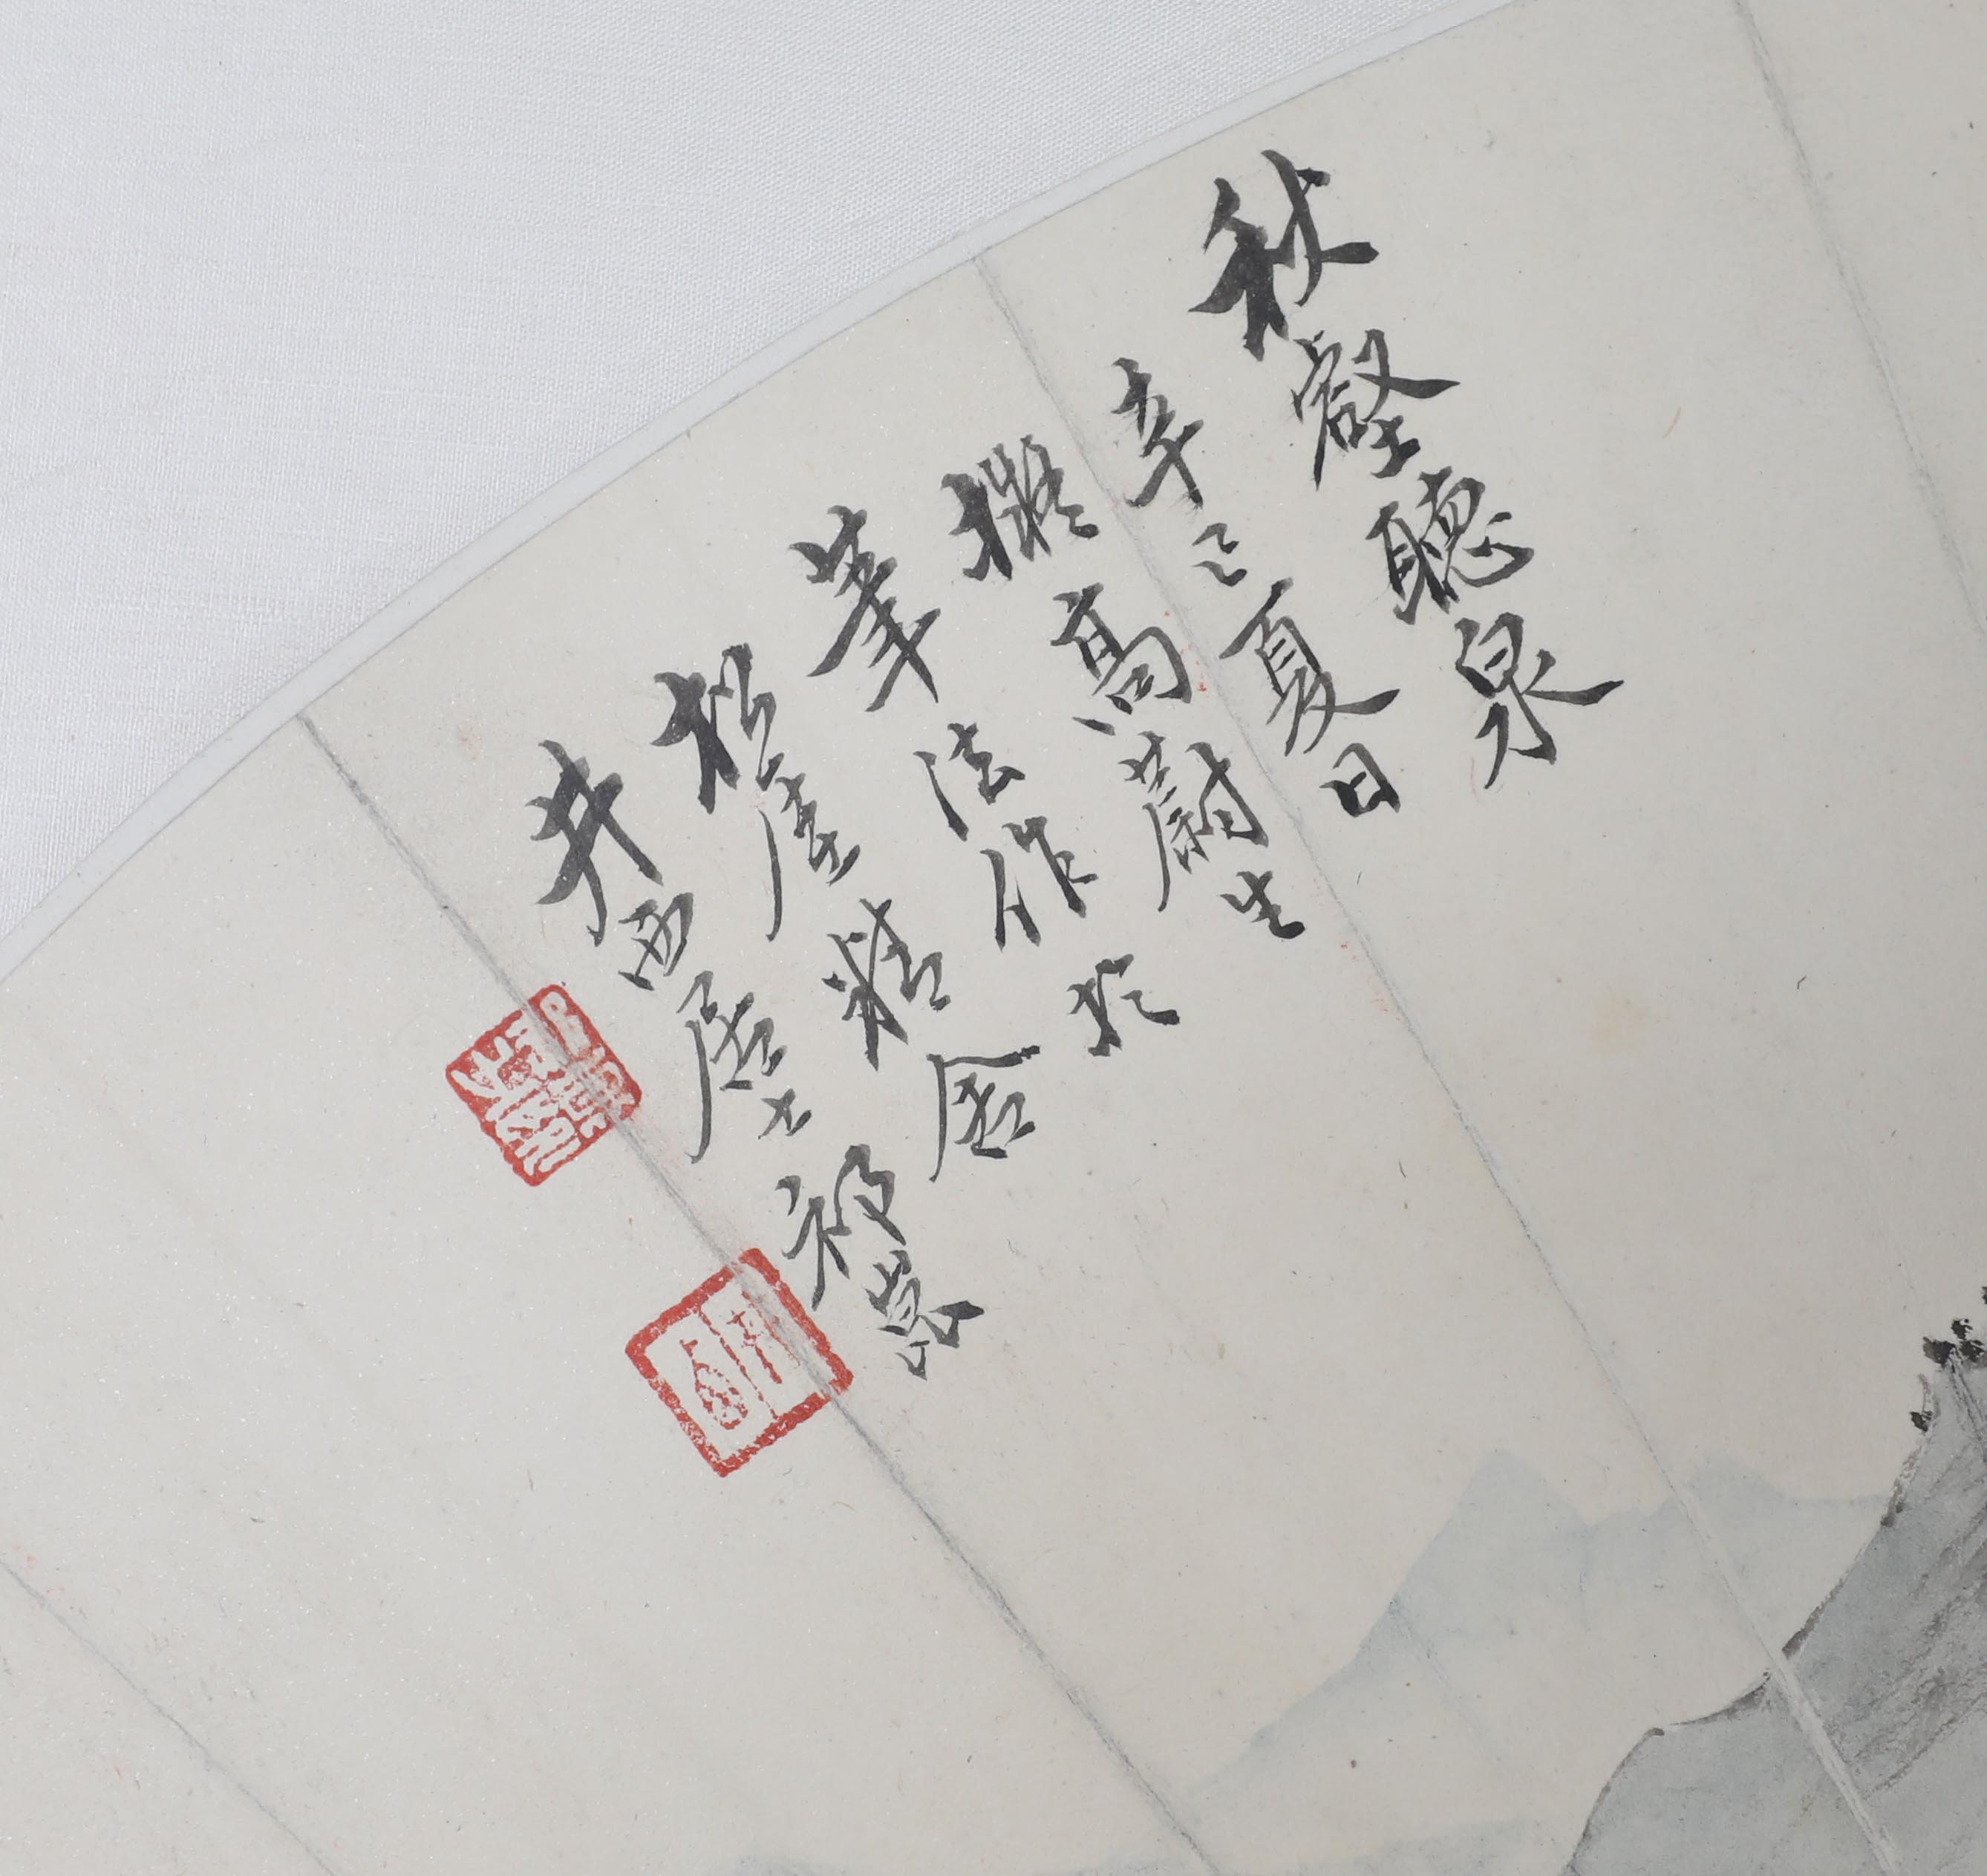 秋壑聽泉
辛巳夏日
擬高蔚生
筆法作於
松崖精舍
井西居士